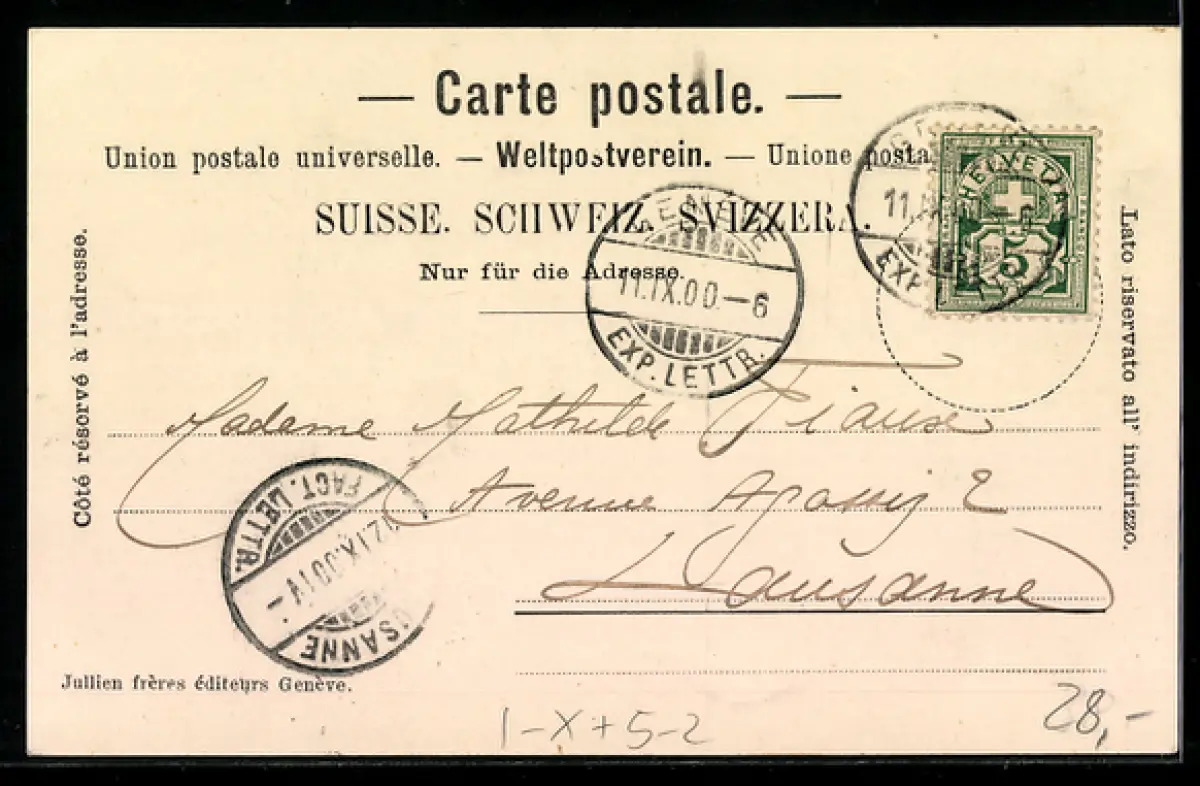 — Carte postale. —
Union postale universelle. — Weltpostverein. — Unione posta
SUISSE. SCHWEIZ. SVIZZERA.
Nur für die Adresse.
Côté réservé à l'adresse.
Lato riservato all' indirizzo.
HELVETIA
5
11.
EXP. LETTR.
GENÈVE
11.IX.00.—6
EXP. LETTR.
Madame Mathilde
Avenue Agassiz 2
Lausanne
FACT. LETTR.
12.IX.00 IV —
USANNE
Jullien frères éditeurs Genève.
1-X+5-2
28,-